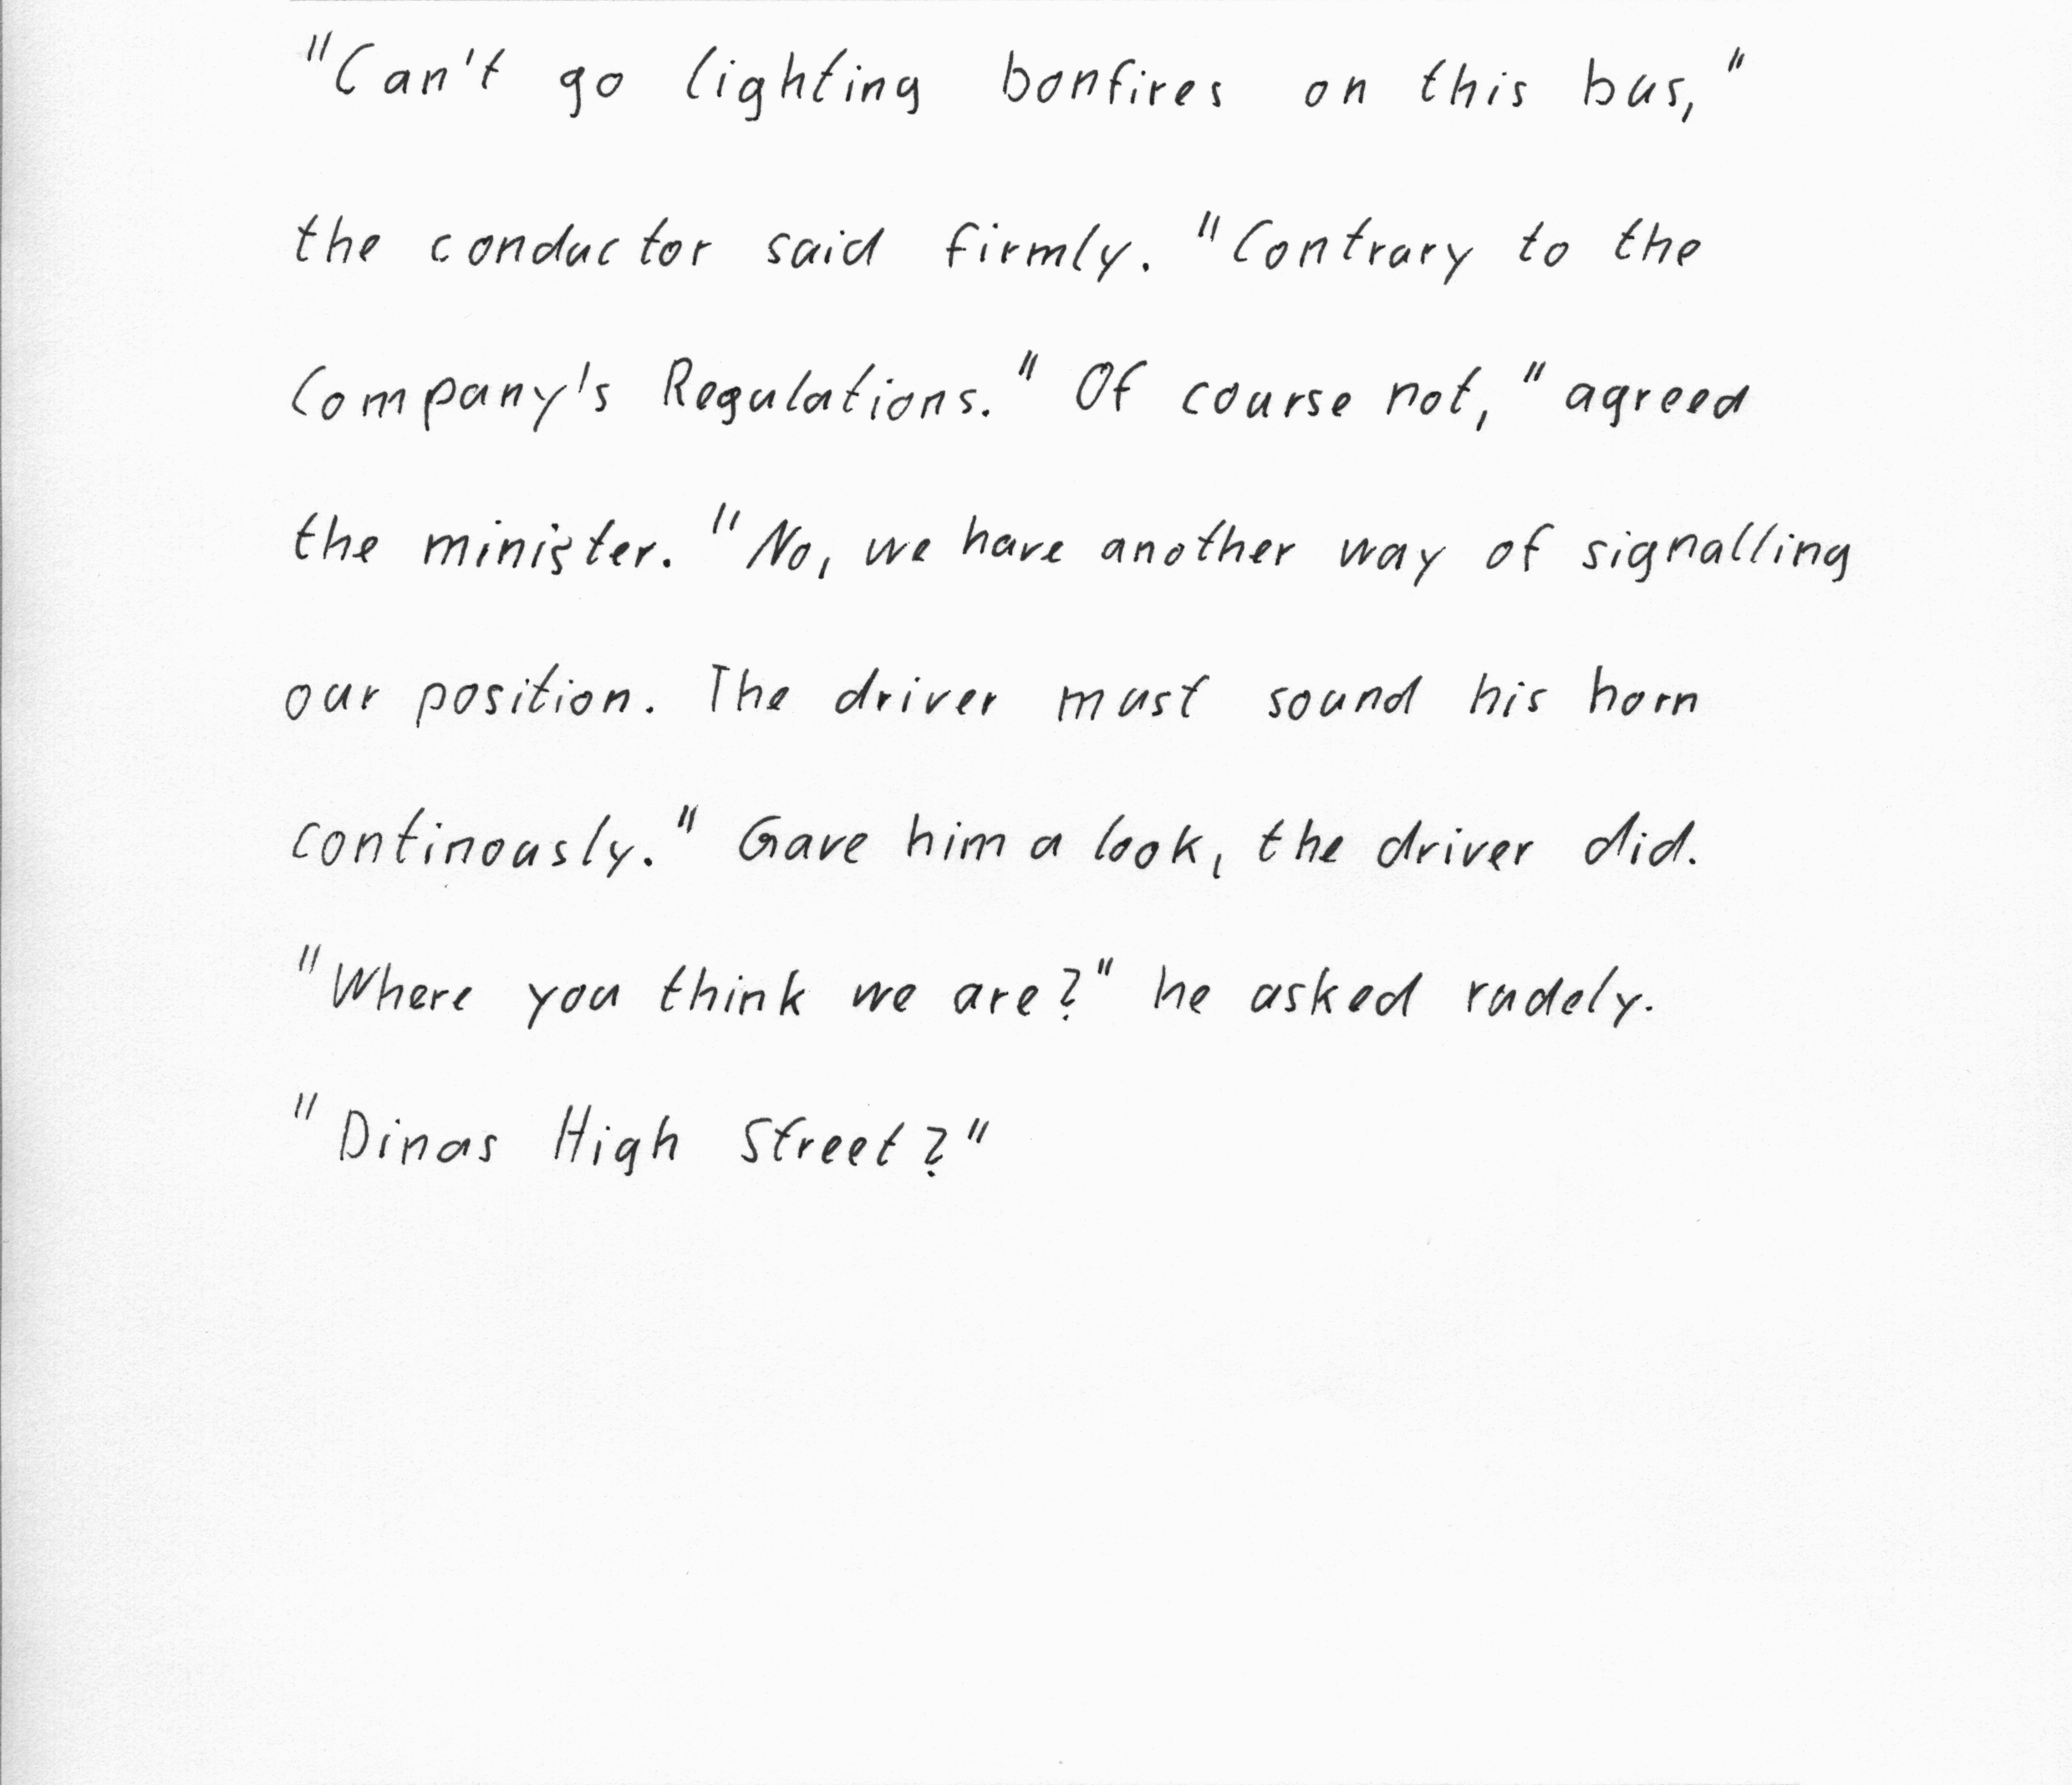 "Can't go lighting bonfires on this bus,"
the conductor said firmly. "Contrary to the
Company's Regulations." Of course not," agreed
the minister. "No, we have another way of signalling
our position. The driver must sound his horn
continously." Gave him a look, the driver did.
"Where you think we are?" he asked rudely.
"Dinas High Street?"